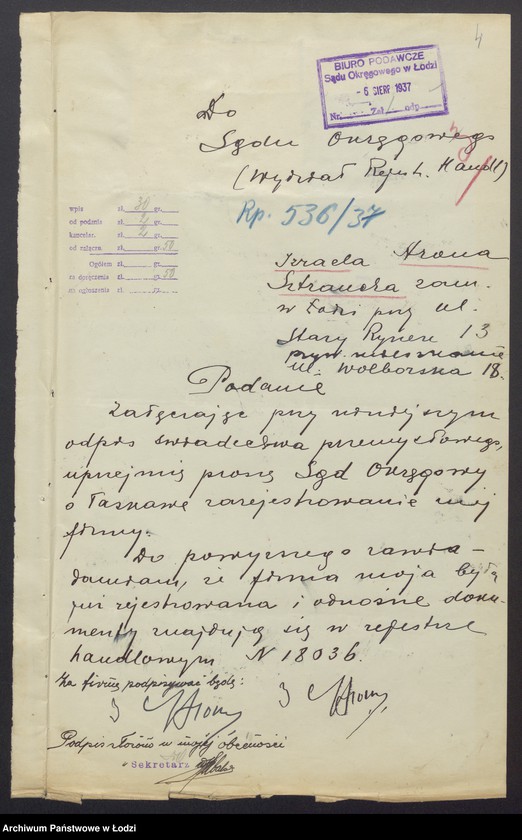 4
BIURO PODAWCZE
Sądu Okręgowego w Łodzi
- 6 SIERP 1937
Nr. Zał. odp.
Do
Sądu Okręgowego
(Wydział Rejestr. Handl)
Rp. 536/37
wpis zł. 30 gr.
od podania zł. 2 gr.
kancelar. zł. 2 gr.
od załączn. zł. gr. 50
Ogółem zł. gr.
za doręczenie zł. gr. 50
za ogłoszenie zł. gr.
Izraela Arona
zam.
w Łodzi przy ul.
Stary Rynek 13
pryw. mieszkanie
ul. Wolborska 18.
Podanie
Załączając przy niniejszym
odpis świadectwa przemysłowego,
uprzejmie proszę Sąd Okręgowy
o łaskawe zarejestrowanie mej
firmy.
Do powyższego zawia-
damiam, że firma moja była
już rejestrowana i odnośne doku-
menty znajdują się w rejestrze
handlowym N 18036.
Za firmę podpisywać będę:
Podpis złożono w mojej obecności
Sekretarz
Archiwum Państwowe w Łodzi